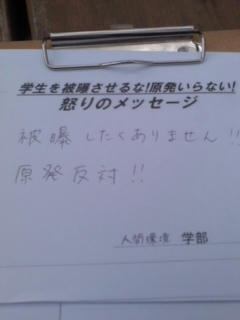 学生を被曝させるな!原発いらない!
怒りのメッセージ
被曝したくありません!!
原発反対!!
人間環境 学部